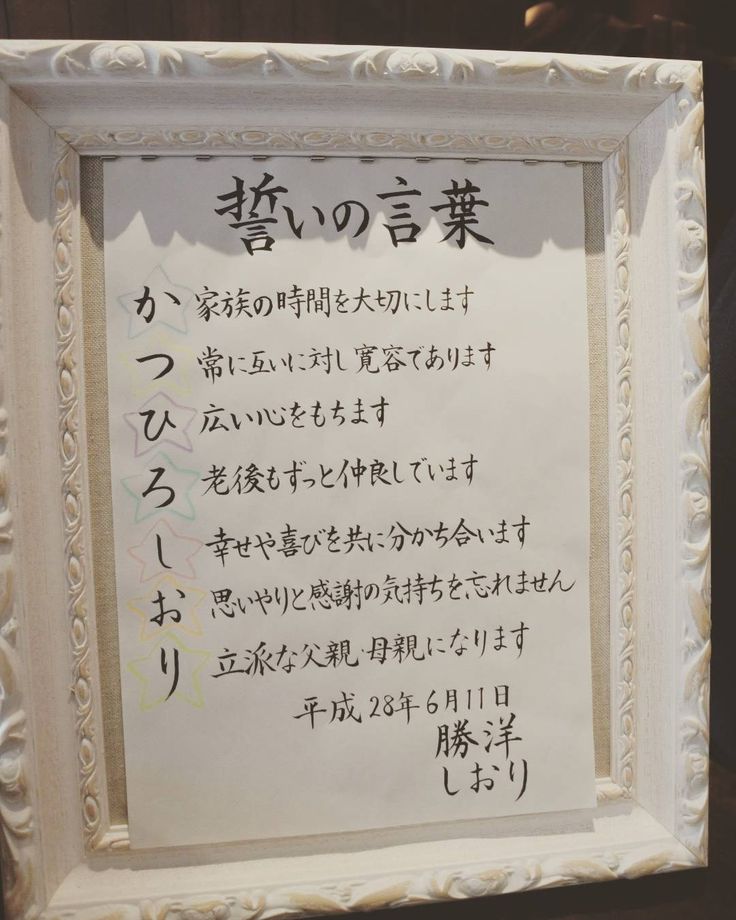 誓いの言葉
か 家族の時間を大切にします
つ 常に互いに対し寛容であります
ひ 広い心をもちます
ろ 老後もずっと仲良しでいます
し 幸せや喜びを共に分かち合います
お 思いやりと感謝の気持ちを忘れません
り 立派な父親・母親になります
平成28年6月11日
勝洋
しおり